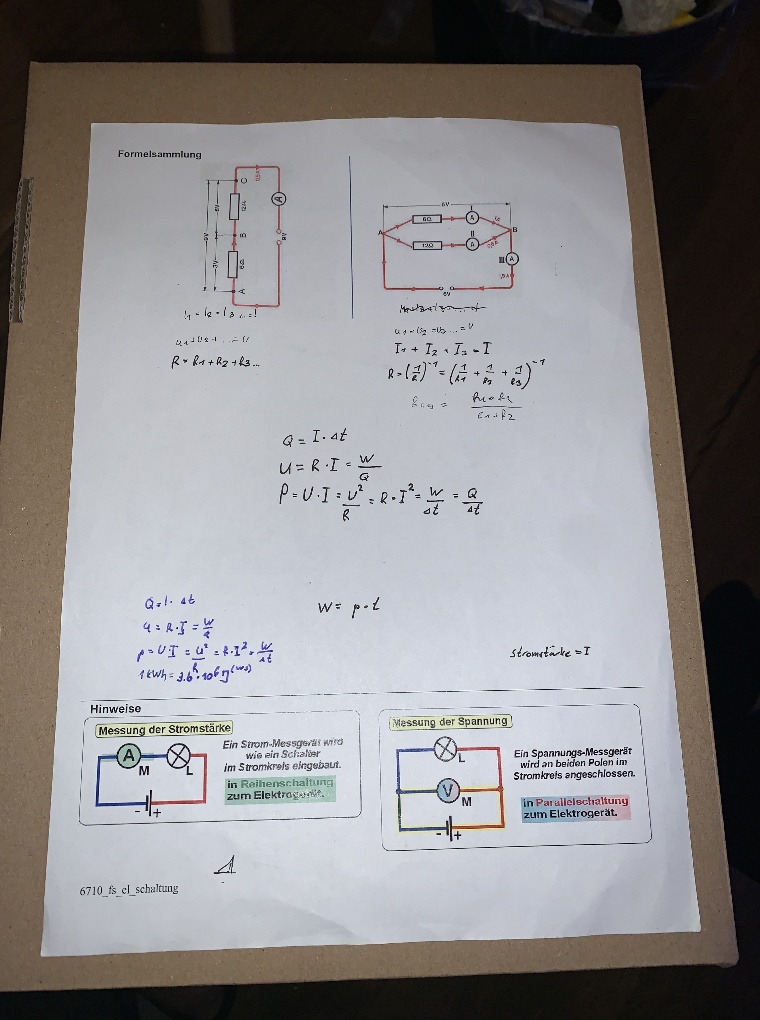 Formelsammlung
C
0,5A
12Ω
6V
A
9V
B
3V
9V
6Ω
A
6V
I
6Ω
A
A
II
B
12Ω
A
III
A
6V
I1 = I2 = I3 ... = I
U1 = U2 = U3 ... = U
I1 + I2 + I3 = I
R = R1 + R2 + R3 ...
R = (1/R)⁻¹ = (1/R1 + 1/R2 + 1/R3)⁻¹
Q = I · Δt
U = R · I = W/Q
P = U · I = U²/R = R · I² = W/Δt = Q/Δt
Q = I · Δt
W = p · t
U = R · I = W/Q
P = U · I = U²/R = R · I² = W/Δt
Stromstärke = I
1 kWh = 3.6 · 10⁶ J (Ws)
Hinweise
Messung der Stromstärke
A
M
L
- +
Ein Strom-Messgerät wird
wie ein Schalter
im Stromkreis eingebaut.
in Reihenschaltung
zum Elektrogerät.
Messung der Spannung
L
V
M
- +
Ein Spannungs-Messgerät
wird an beiden Polen im
Stromkreis angeschlossen.
in Parallelschaltung
zum Elektrogerät.
6710_fs_el_schaltung